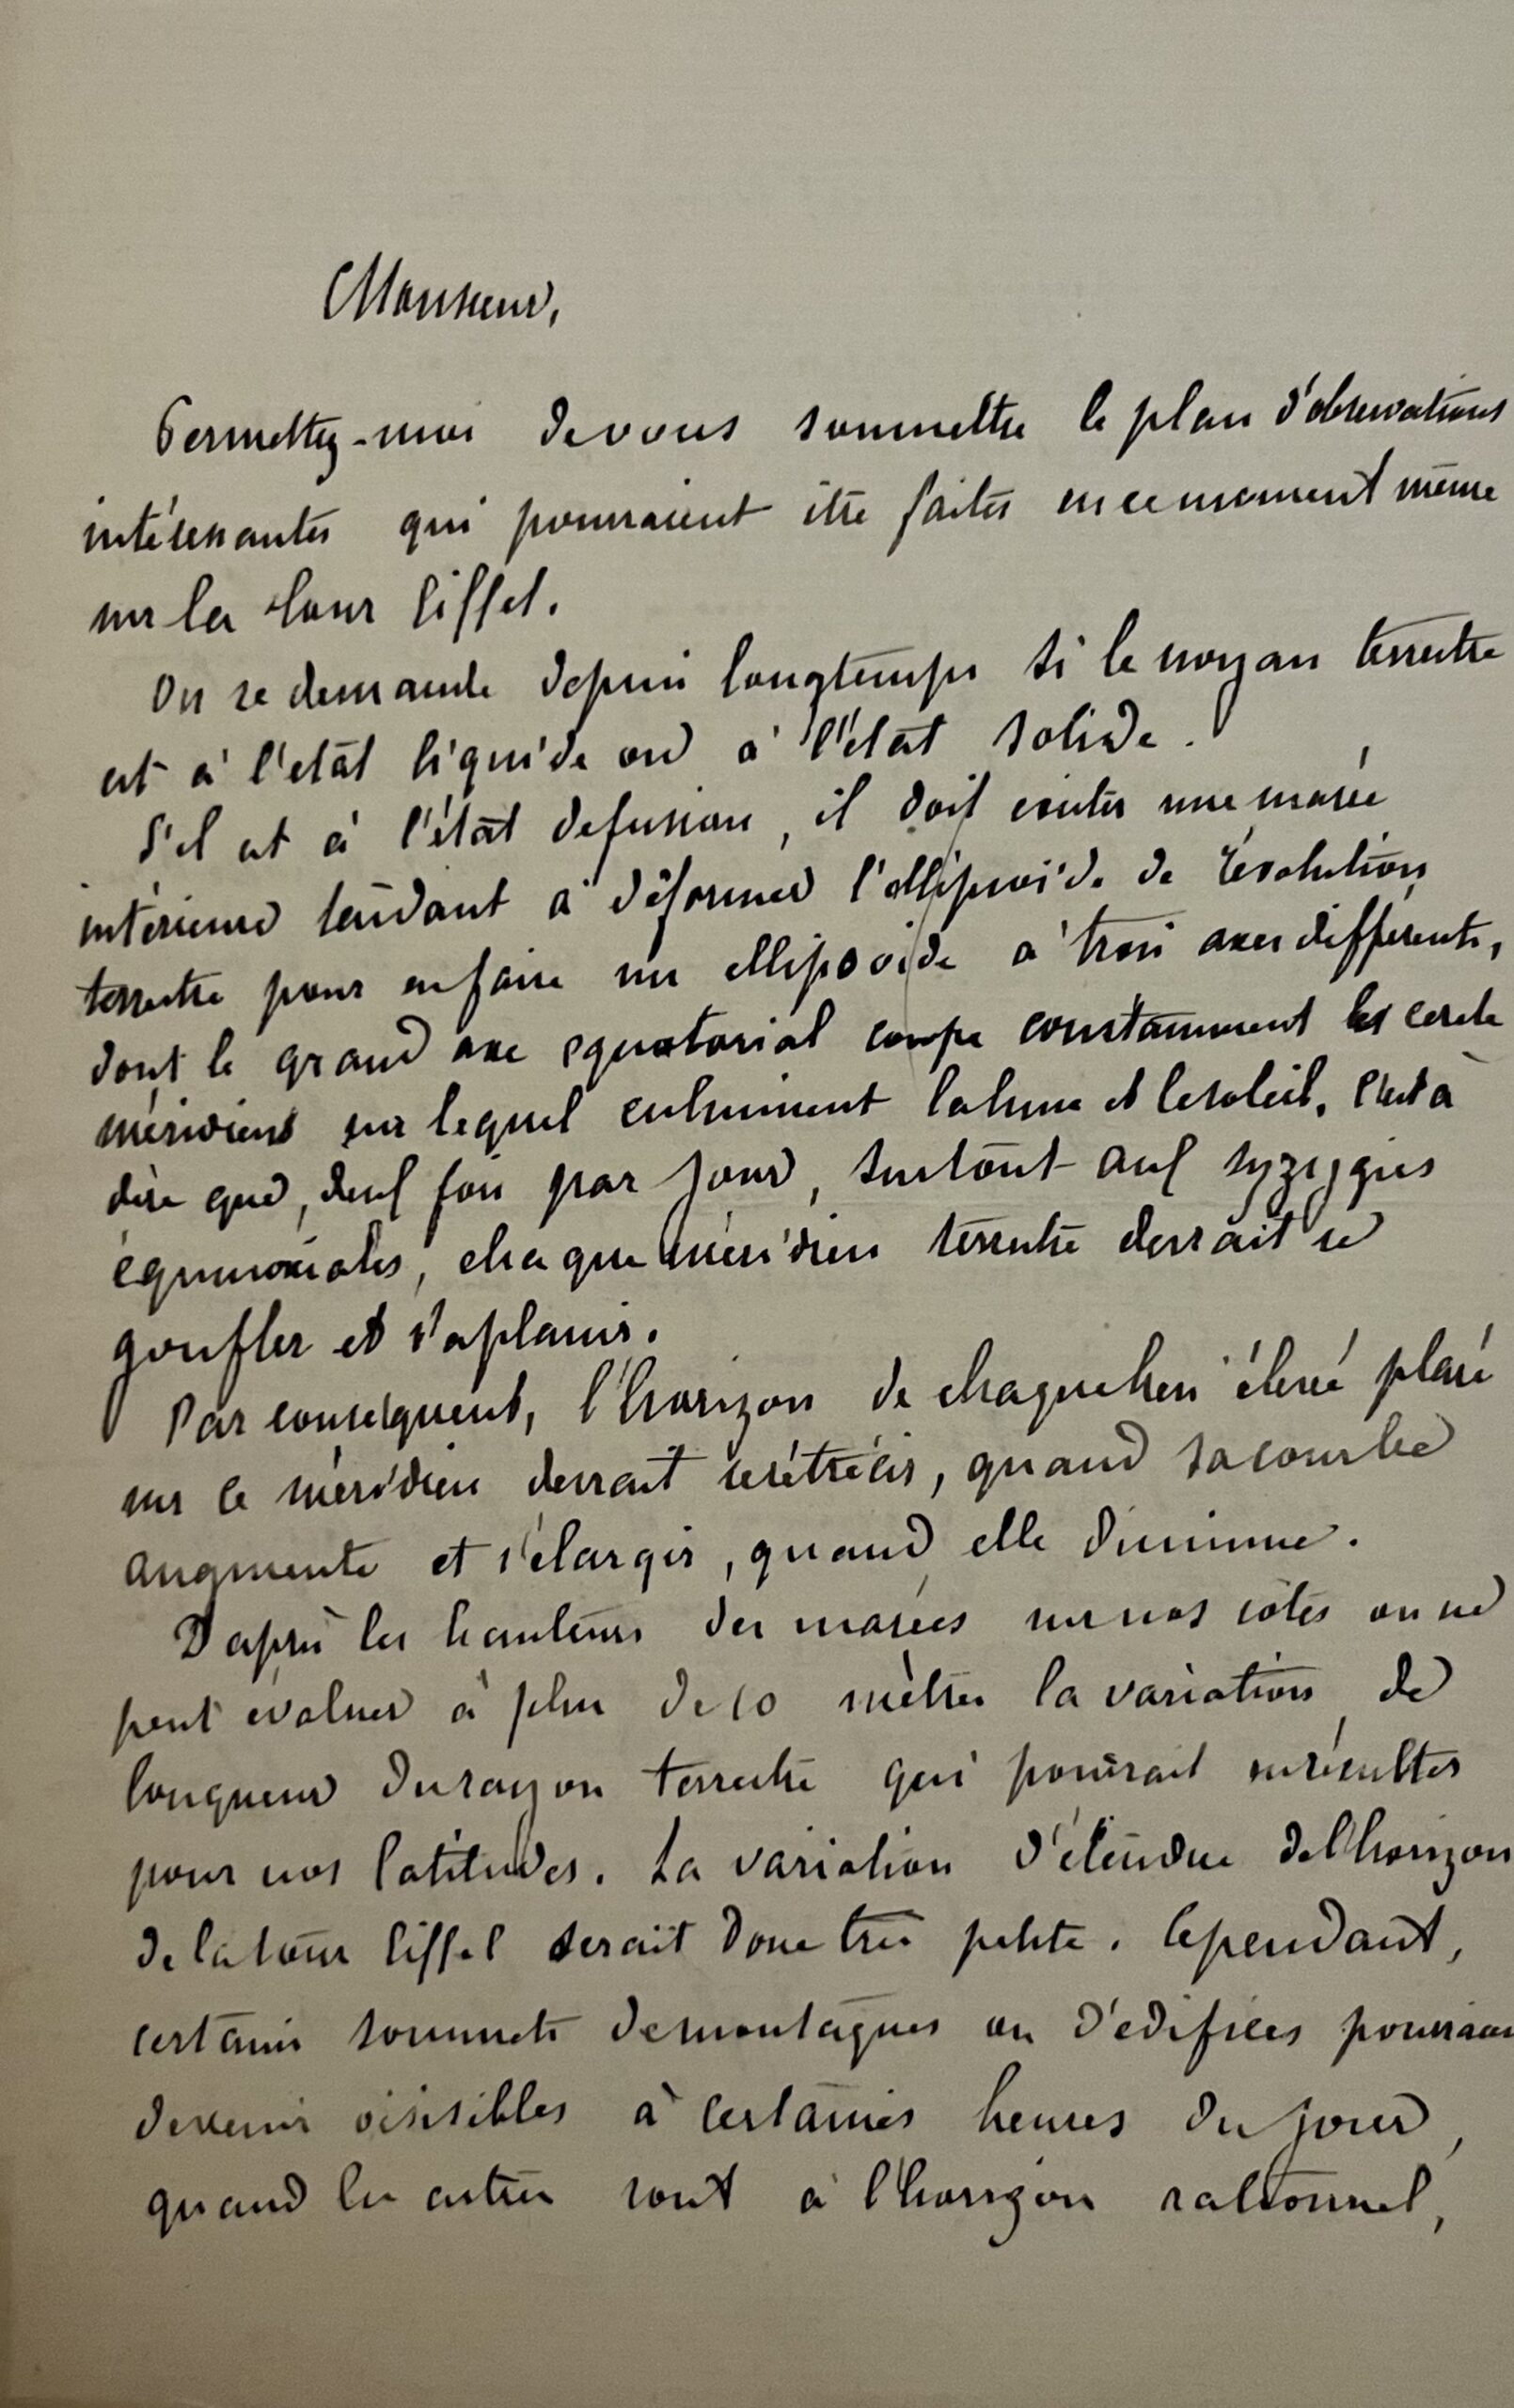 Monsieur,
Permettez-moi de vous soumettre le plan d'observations
intéressantes qui pourraient être faites en ce moment même
sur la tour Eiffel.
On se demande depuis longtemps si le noyau terrestre
est à l'état liquide ou à l'état solide.
S'il est à l'état de fusion, il doit exister une marée
intérieure tendant à déformer l'ellipsoïde de révolution
terrestre pour en faire un ellipsoïde à trois axes différents,
dont le grand axe équatorial coupe constamment les cercle
méridiens sur lequel culminent la lune et le soleil. C'est à
dire que, deux fois par jour, surtout aux syzygies
équinoxiales, chaque méridien terrestre devrait se
gonfler et s'aplanir.
Par conséquent, l'horizon de chaque lieu élevé placé
sur ce méridien devrait se rétrécir, quand sa courbe
augmente et s'élargir, quand elle diminue.
D'après les hauteurs des marées sur nos côtes on ne
peut évaluer à plus de 10 mètres la variation de
longueur du rayon terrestre qui pourrait en résulter
pour nos latitudes. La variation d'étendue de l'horizon
de la tour Eiffel serait donc très petite. Cependant,
certains sommets de montagnes ou d'édifices pourraien
devenir visibles à certaines heures du jour,
quand les astres sont à l'horizon rationnel,